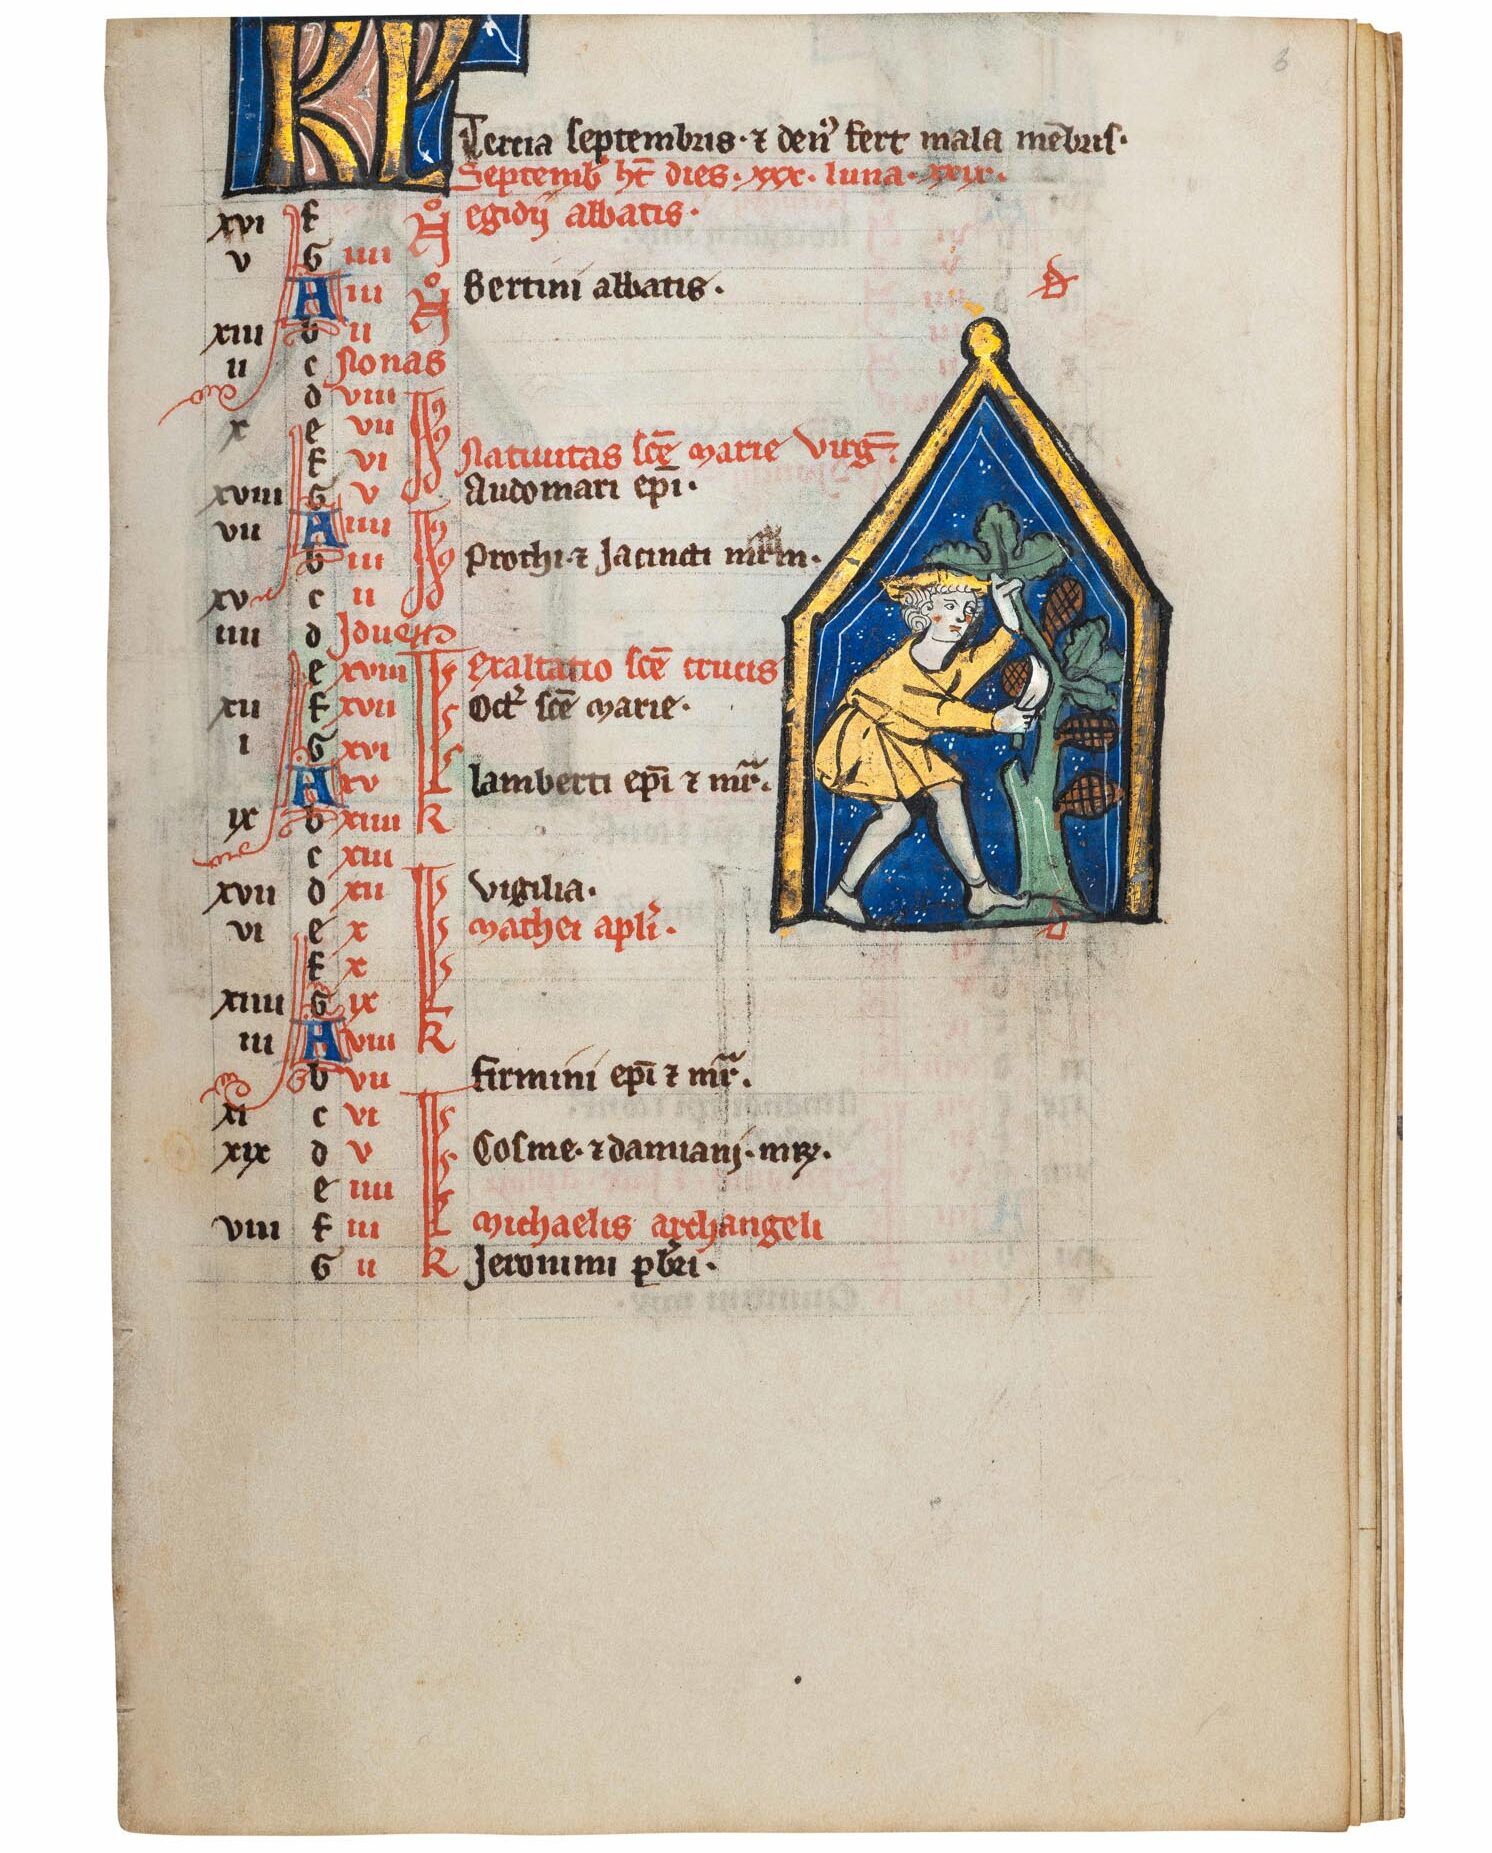 6
KL
Tercia septembris · ⁊ den⁹ fert mala mēbris ·
Septemb' ht̄ dies · xxx · luna · xxix ·
xvi f N⁹ egidij abbatis ·
v G iiii
A iii N⁹ Bertini abbatis · d
xiii b ii
ii c Nonas
d viii
x e vii
f vi Natiuitas sc̄e marie virḡ ·
xviii G v Audomari ep̄i ·
vii A iiii
b iii Prothi · ⁊ Jacincti mr̄m ·
xv c ii
iiii d Jdus
e xviii Exaltatio sc̄e crucis
xii f xvii Oct' sc̄e marie ·
i G xvi
A xv lamberti ep̄i ⁊ mr̄ ·
ix b xiiii k
c xiii
xvii d xii Vigilia ·
vi e x mathei apl'i · d
f x
xiiii G ix
iii A viii k
b vii firmini ep̄i ⁊ mr̄ ·
xi c vi
xix d v Cosme · ⁊ damiani · mr̄ ·
e iiii
viii f iii michaelis archangeli
G ii k Jeronimi pb'ri ·